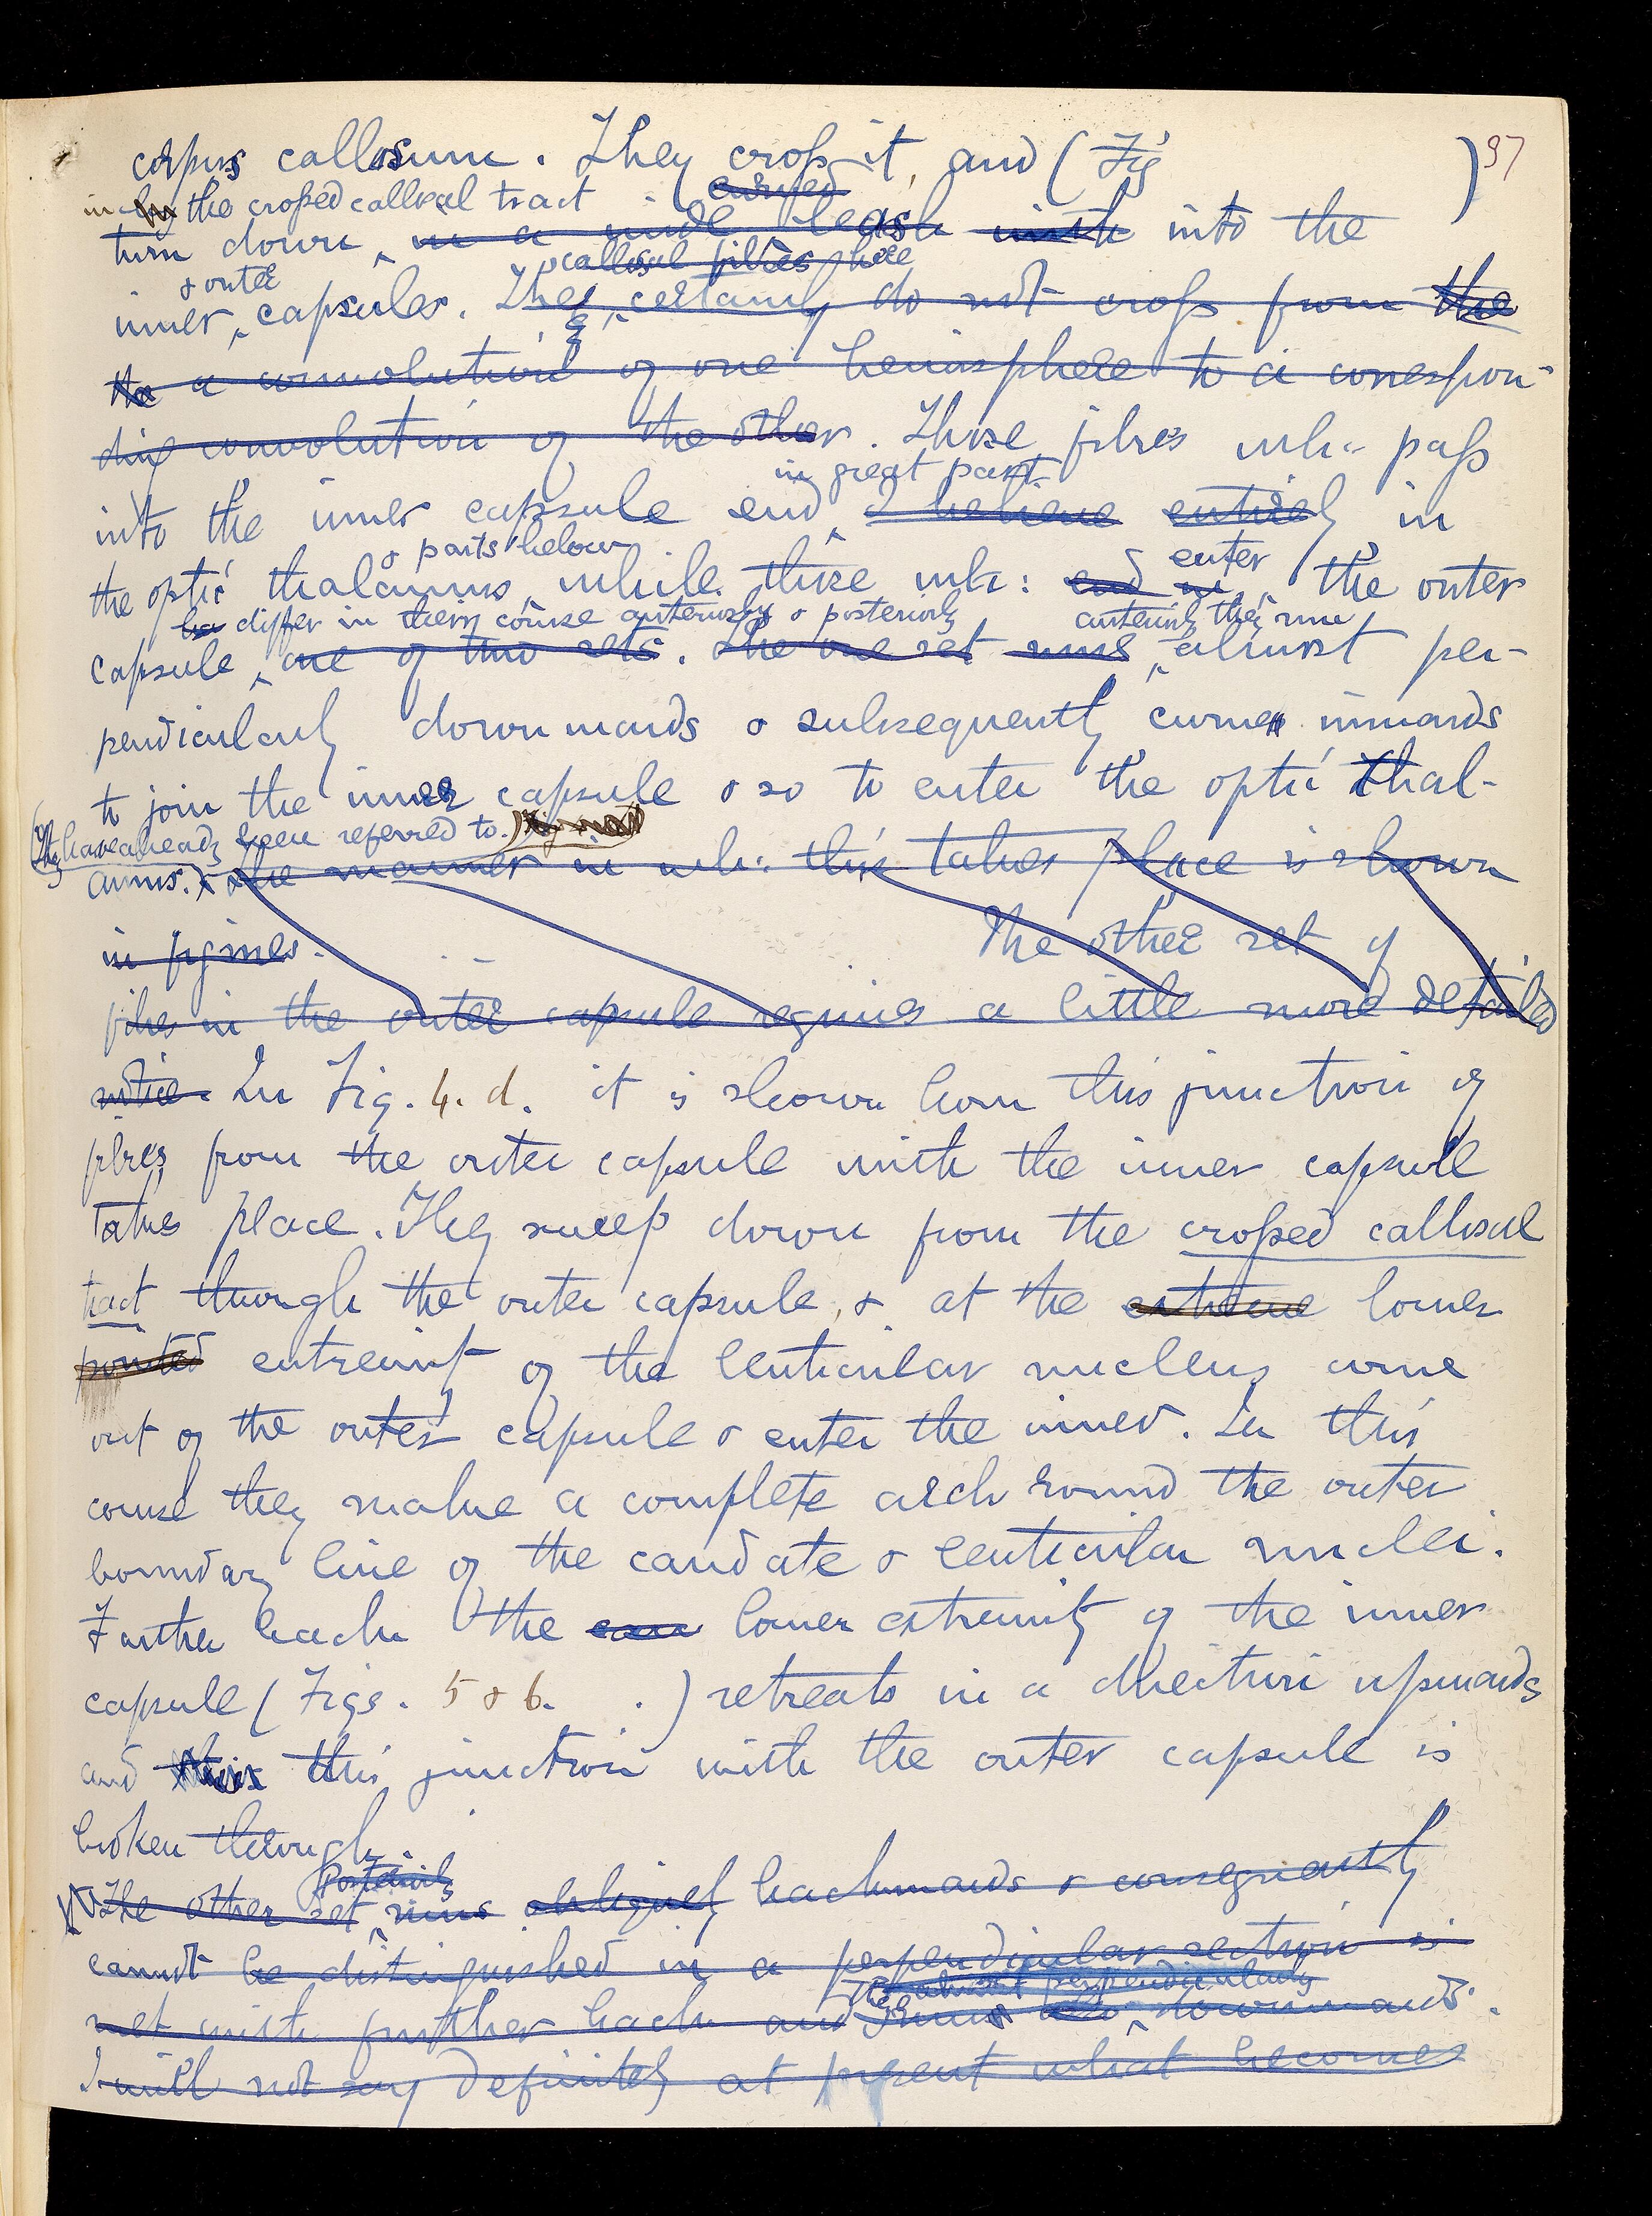 corpus callosum. They cross it, and (Fig ) 97
in the crossed callosal tract curved
turn down in a wide leash into the
& outer callosal fibres here
inner capsules. They certainly do not cross from the
the a convolution of one hemisphere to a correspon-
ding convolution of the other. Those fibres wh: pass
in great part
into the inner capsule end, I believe entirely in
& parts below enter
the optic thalamus, while those wh: end in the outer
differ in their course anteriorly & posteriorly anteriorly they run
capsule are of two sets. The one set runs almost per-
pendicularly downwards & subsequently curves inwards
to join the inner capsule & so to enter the optic thal-
(They have already been referred to.)
amus. The manner in wh: this takes place is shown
in figures. The other set of
fibres in the outer capsule requires a little more detailed
notice. In Fig. 4. d. it is shown how this junction of
fibres from the outer capsule with the inner capsule
takes place. They sweep down from the crossed callosal
tract through the outer capsule, & at the extreme lower
pointed extremity of the lenticular nucleus curve
out of the outer capsule & enter the inner. In this
course they make a complete arch round the outer
boundary line of the caudate & lenticular nuclei.
Further back the lower extremity of the inner
capsule (Figs. 5 & 6. .) retreats in a direction upwards
and this junction with the outer capsule is
broken through.
Posteriorly
The other set runs obliquely backwards & consequently
cannot be distinguished in a perpendicular section is
almost perpendicularly
met with further back and runs downwards.
I will not say definitely at present what becomes